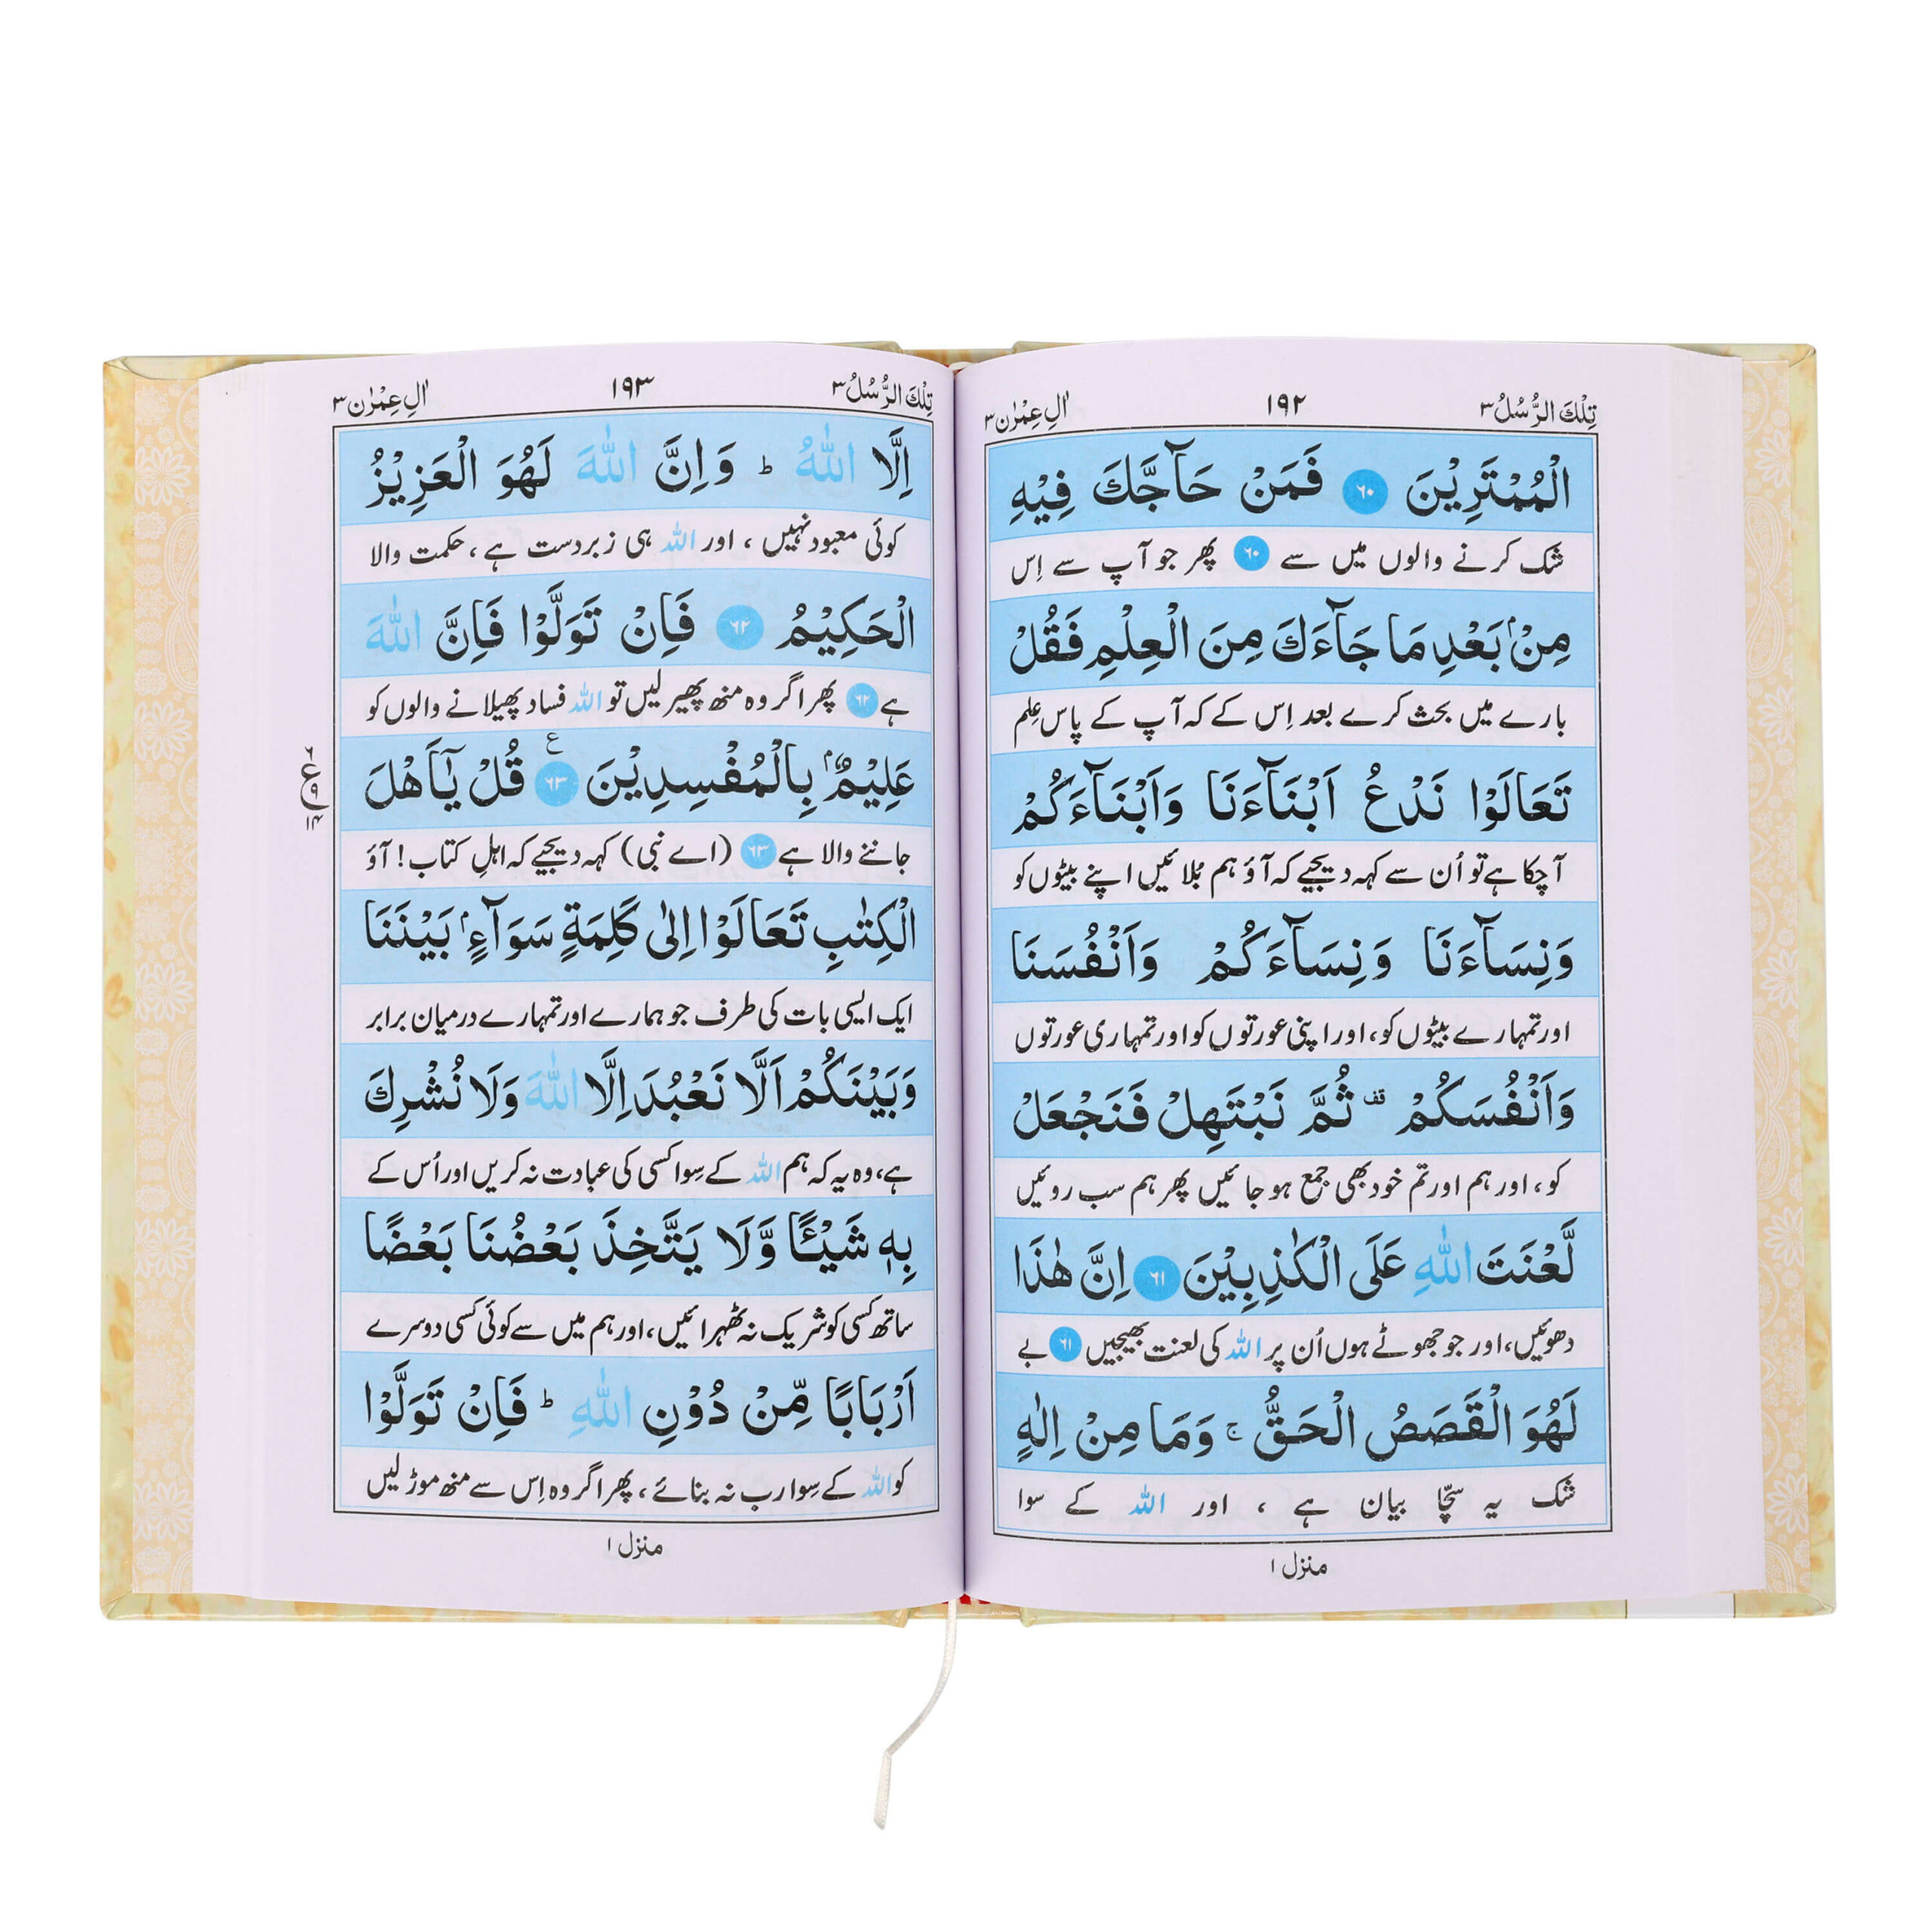 تِلْكَ الرُّسُلُ ٣ ١٩٢ اٰلِ عِمْرٰن ٣
الْمُمْتَرِيْنَ ٦٠ فَمَنْ حَآجَّكَ فِيْهِ
شک کرنے والوں میں سے ٦٠ پھر جو آپ سے اِس
مِنْۢ بَعْدِ مَا جَآءَكَ مِنَ الْعِلْمِ فَقُلْ
بارے میں بحث کرے بعد اِس کے کہ آپ کے پاس عِلم
تَعَالَوْا نَدْعُ اَبْنَآءَنَا وَاَبْنَآءَكُمْ
آچکا ہے تو اُن سے کہہ دیجیے کہ آؤ ہم بُلائیں اپنے بیٹوں کو
وَنِسَآءَنَا وَنِسَآءَكُمْ وَاَنْفُسَنَا
اور تمہارے بیٹوں کو، اور اپنی عورتوں کو اور تمہاری عورتوں
وَاَنْفُسَكُمْ قف ثُمَّ نَبْتَهِلْ فَنَجْعَلْ
کو، اور ہم اور تم خود بھی جمع ہو جائیں پھر ہم سب روئیں
لَّعْنَتَ اللّٰهِ عَلَى الْكٰذِبِيْنَ ٦١ اِنَّ هٰذَا
دھوئیں، اور جو جھوٹے ہوں اُن پر اللہ کی لعنت بھیجیں ٦١ بے
لَهُوَ الْقَصَصُ الْحَقُّ ۚ وَمَا مِنْ اِلٰهٍ
شک یہ سچّا بیان ہے ، اور اللہ کے سوا
منزل ١
تِلْكَ الرُّسُلُ ٣ ١٩٣ اٰلِ عِمْرٰن ٣
اِلَّا اللّٰهُ ؕ وَاِنَّ اللّٰهَ لَهُوَ الْعَزِيْزُ
کوئی معبود نہیں ، اور اللہ ہی زبردست ہے ، حکمت والا
الْحَكِيْمُ ٦٢ فَاِنْ تَوَلَّوْا فَاِنَّ اللّٰهَ
ہے ٦٢ پھر اگر وہ منھ پھیر لیں تو اللہ فساد پھیلانے والوں کو
عَلِيْمٌۢ بِالْمُفْسِدِيْنَ ٦٣ ع قُلْ يٰٓاَهْلَ
٦ ع ٩ ١٤
جاننے والا ہے ٦٣ (اے نبی) کہہ دیجیے کہ اہلِ کتاب! آؤ
الْكِتٰبِ تَعَالَوْا اِلٰى كَلِمَةٍ سَوَآءٍۢ بَيْنَنَا
ایک ایسی بات کی طرف جو ہمارے اور تمہارے درمیان برابر
وَبَيْنَكُمْ اَلَّا نَعْبُدَ اِلَّا اللّٰهَ وَلَا نُشْرِكَ
ہے، وہ یہ کہ ہم اللہ کے سِوا کسی کی عبادت نہ کریں اور اُس کے
بِهٖ شَيْـًٔا وَّلَا يَتَّخِذَ بَعْضُنَا بَعْضًا
ساتھ کسی کو شریک نہ ٹھہرائیں، اور ہم میں سے کوئی کسی دوسرے
اَرْبَابًا مِّنْ دُوْنِ اللّٰهِ ؕ فَاِنْ تَوَلَّوْا
کو اللہ کے سِوا رب نہ بنائے ، پھر اگر وہ اِس سے منھ موڑ لیں
منزل ١